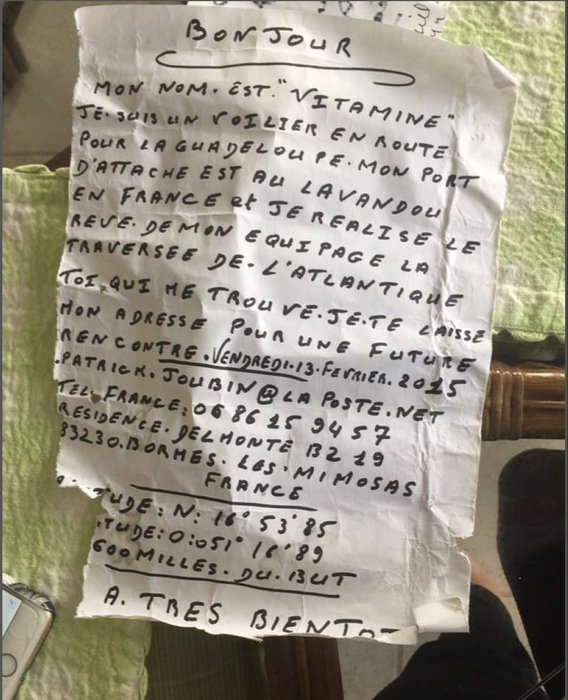 BONJOUR
MON NOM. EST. "VITAMINE"
JE. SUIS UN VOILIER EN ROUTE
POUR LA GUADELOUPE. MON PORT
D'ATTACHE EST AU LAVANDOU
EN FRANCE et JE REALISE LE
REVE. DE MON EQUIPAGE LA
TRAVERSEE DE. L'ATLANTIQUE
TOI. QUI ME TROUVE. JE. TE LAISSE
MON ADRESSE POUR UNE FUTURE
RENCONTRE. VENDREDI. 13. FEVRIER. 2015
.PATRICK. JOUBIN@LAPOSTE.NET
TEL. FRANCE: 06 86 15 94 57
RESIDENCE. DELMONTE B2 19
83230. BORMES. LES. MIMOSAS
FRANCE
TUDE: N: 16° 53' 85
.TUDE: O: 051° 16' 89
600 MILLES. DU. BUT
A. TRES BIENTOT